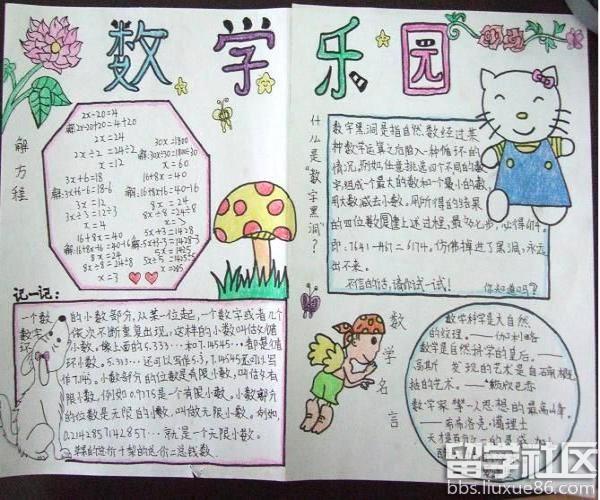 数学乐园
解方程
2x-20=4
解:2x-20+20=4+20
2x=24
2x÷2=24÷2
x=12
30x=1800
解:30x÷30=1800÷30
x=60
3x+6=18
解:3x+6-6=18-6
3x=12
3x÷3=12÷3
x=4
16+8x=40
解:16+8x-16=40-16
8x=24
8x÷8=24÷8
x=3
16+8x=40
8x=24
8x÷8=24÷8
x=3
记一记:
一个数的小数部分,从某一位起,一个数字或者几个
数字依次不断重复出现,这样的小数叫做循
环小数。像上面的5.333…和7.14545…都是循
环小数。5.333…还可以写作5.3,7.14545还可以写
作7.145。小数部分的位数是有限小数,叫做有
限小数。例如0.9375是一个有限小数。小数部分
的位数是无限的小数,叫做无限小数。例如,
0.2142857142857…就是一个无限小数。
什么是“数字黑洞”?
数字黑洞是指自然数经过某
种数学运算之后陷入一种循环的
情况。例如,任意挑选四个不同的数
字,组成一个最大的数和一个最小的数,
用大数减去小数,用所得的结果
的四位数重复上述过程,最多七步,必得6174。
即:7641-1467=6174。仿佛掉进了黑洞,永远
出不来。
不信的话,请你试一试!
你知道吗?
数学名言
数学科学是大自然
的纹理。——伽利略
数学是自然科学的皇后。——
高斯
数学家
人思想的最高
留学社区
bbs.liuxue86.com